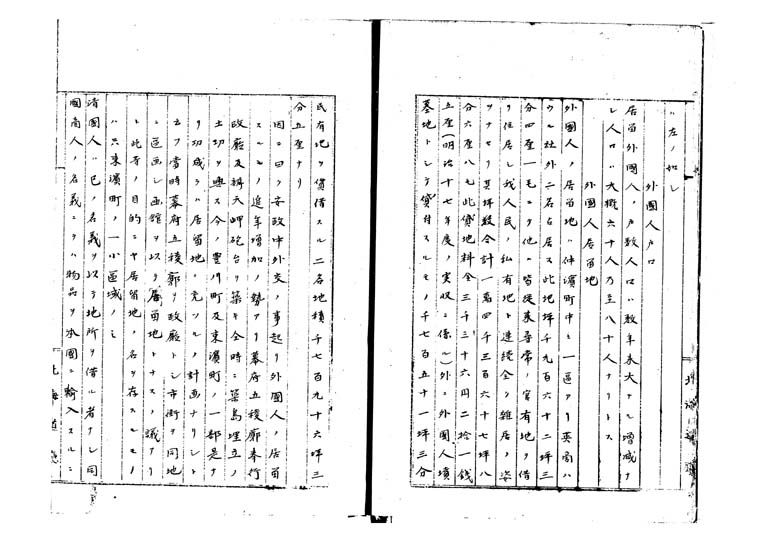 ハ左ノ如シ
外國人戸口
居留外國人ノ戸数人口ハ数年来大ナル増減ナ
シ人口ハ大概六十人乃至八十人ナリトス
外國人居留地
外國人ノ居留地ハ仲濱町中ニ一區アリ英商ハ
ウル社外二名占居ス此地坪千九百六十二坪三
分四厘一毛ニシテ他ハ皆従来尋常ノ官有地ヲ借
リ住居シ我人民ノ私有地ト連続全ク雑居ノ姿
ヲナセリ其坪数合計一萬四千三百六十七坪八
分六厘八毛此貸地料金三千三十六円二拾一銭
五厘(明治十七年度ノ実収ニ係ル)外ニ外國人墳
墓地トシテ貸付スルモノ千七百五十一坪三分
民有地ヲ借借スル二名地積千七百九十六坪三
分五厘ナリ
因ニ曰ク安政中外交ノ事起リ外國人ノ居留
スルモノ追年増加ノ勢アリ幕府五稜廓奉行
政廳及辨天岬砲台ヲ築キ全時ニ築島埋立ノ
土切ヲ興ス今ノ豊川町及東濱町ノ一部是ナ
リ功成ラハ居留地ニ充ツルノ計画ナリシト
云フ當時幕府五稜廓ヲ政廳トシ市街ヲ同地
ニ區画シ函館ヲ以テ居留地トナスノ議アリ
ト此等ノ目的ニヤ居留地ノ名ヲ存スルモノ
ハ只東濱町ノ一小區域ノミ
清國人ハ己ノ名義ヲ以テ地所ヲ借ル者ナシ同
國商人ノ名義ニテハ物品ヲ本國ニ輸入スルニ
北海道廳